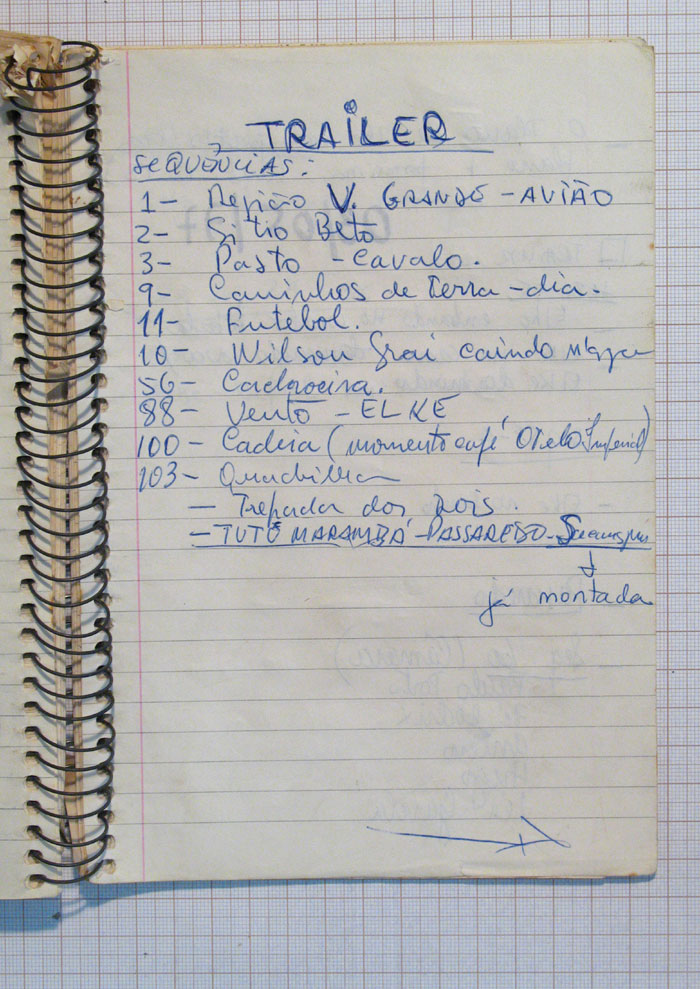 TRAILER
SEQUÊNCIAS:
1- Região V. GRANDE - AVIÃO
2- Sitio Beto
3- Pasto - Cavalo.
9- Caminhos de terra - dia.
11- Futebol.
10- Wilson Grai caindo
56- Cachoeira.
88- Vento - ELKE
100- Cadeia (momento café, OTELO Imperial)
103- Quadrilha
- Trepada dos dois.
- TUTÚ MARAMBÁ - PASSAREDO -
já montada